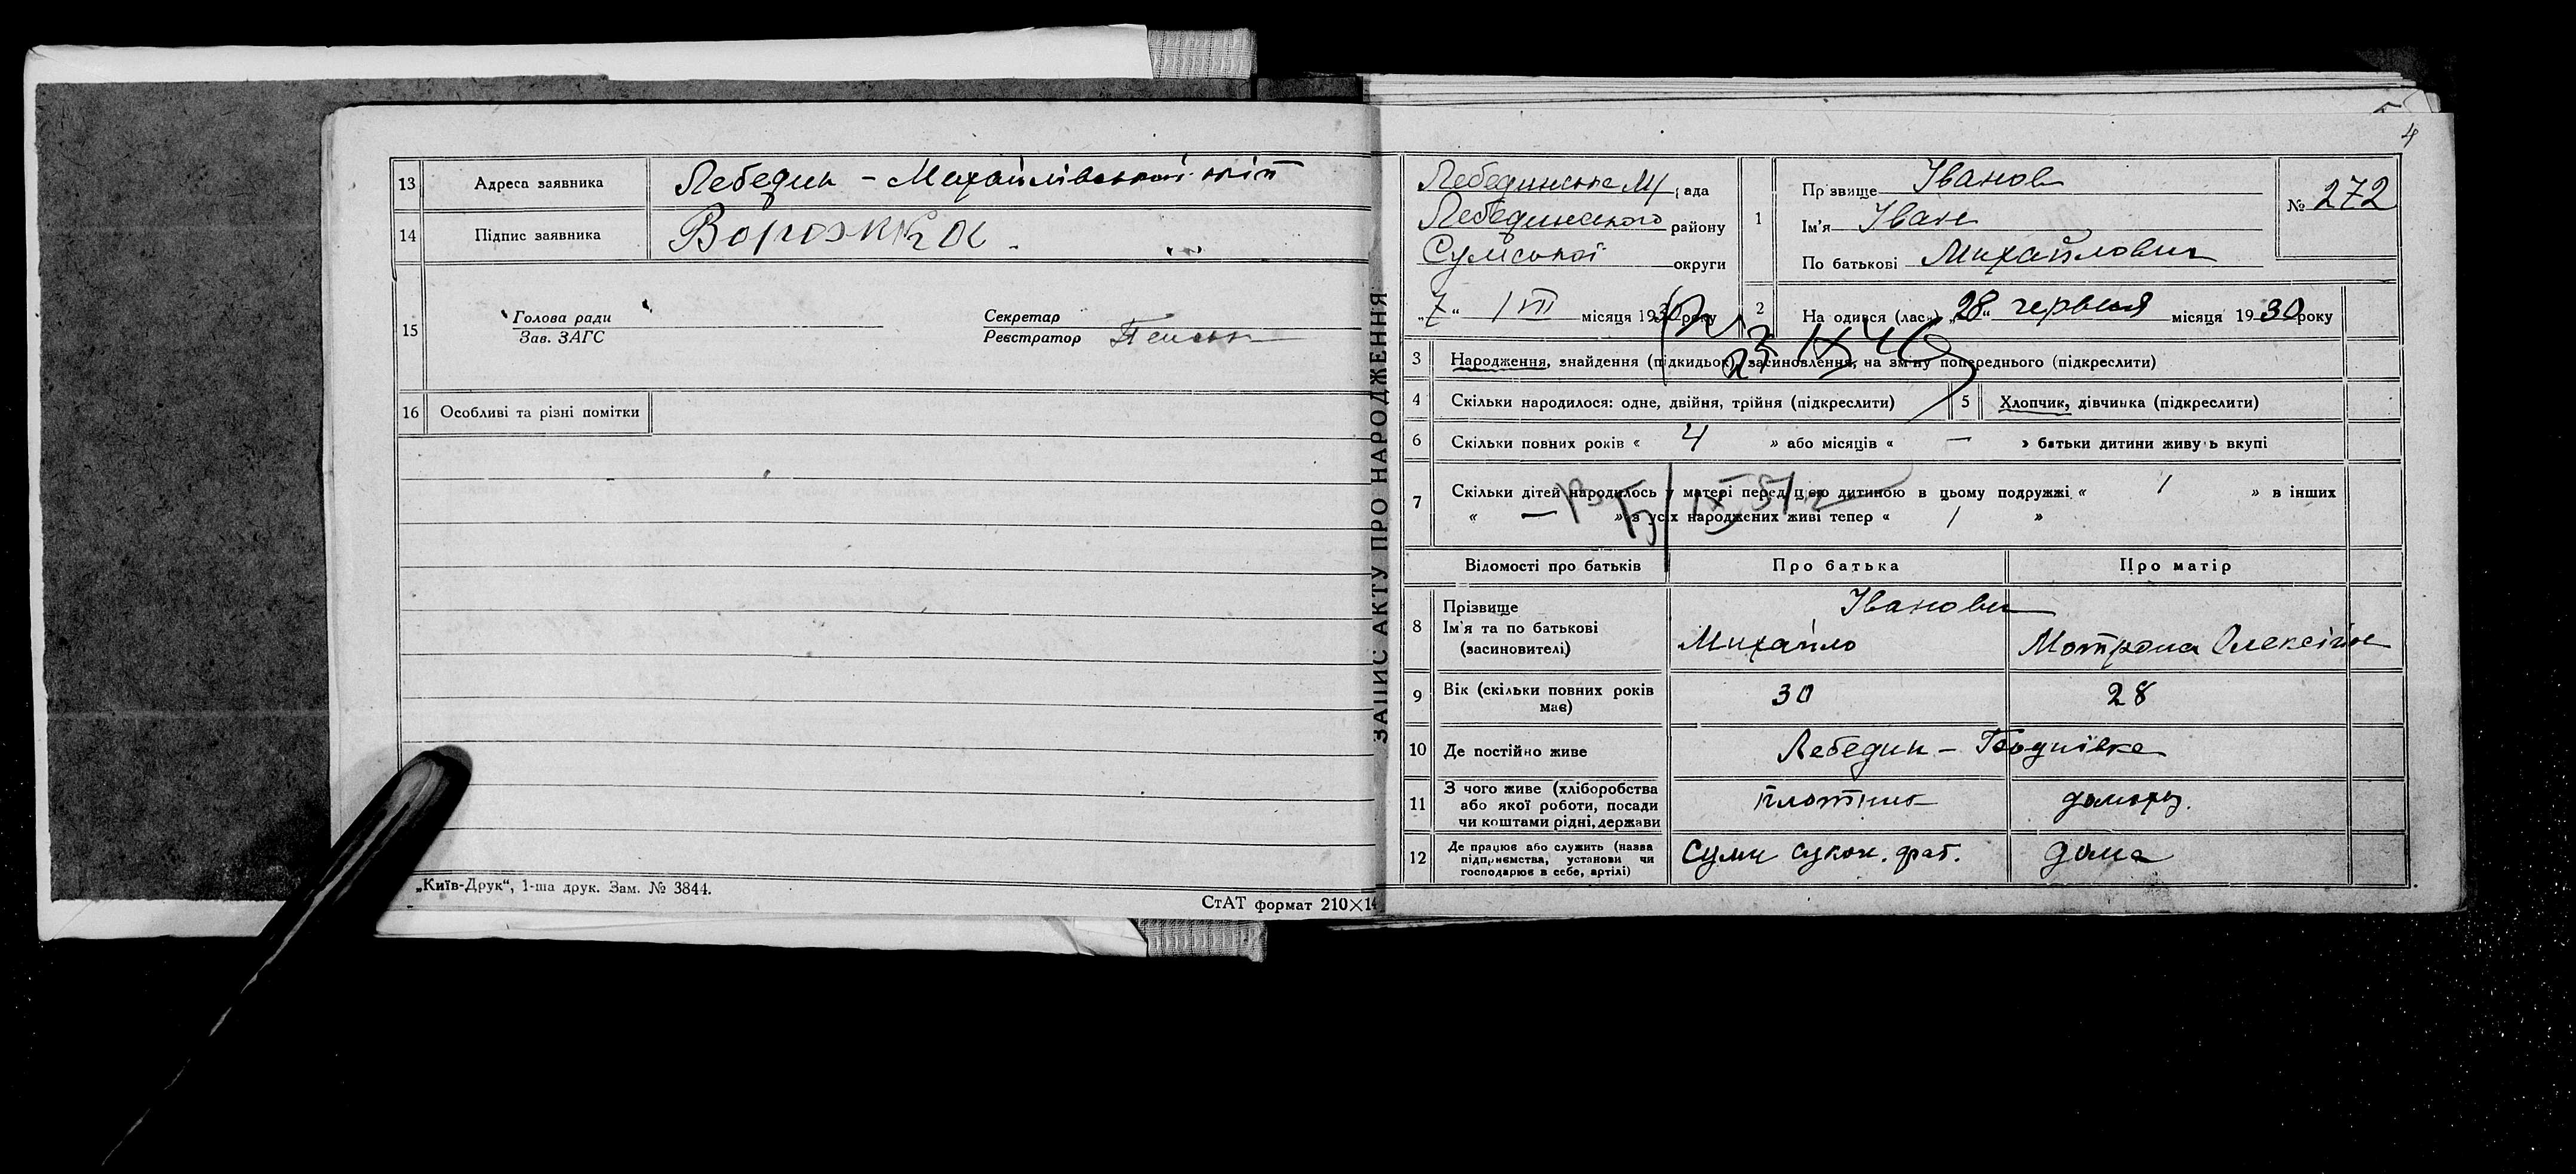 13 Адреса заявника Лебедин – Михайлівській
14 Підпис заявника Ворожка
15 Голова ради
Зав. ЗАГС
Секретар
Реєстратор
16 Особливі та різні помітки
„Київ-Друк“, 1-ша друк. Зам. № 3844.
СтАТ формат 210×14
ЗАПИС АКТУ ПРО НАРОДЖЕННЯ
4
Лебединська М/рада
Лебединського району
Сумської округи
„7“ VII місяця 1930 року
1 Прізвище Іванов
Ім'я Іван
По батькові Михайлович
№ 272
2 Народився (лась) „28“ червня місяця 1930 року
23 IX 46
3 Народження, знайдення (підкидьок), засиновлення, на зміну попереднього (підкреслити)
4 Скільки народилося: одне, двійня, трійня (підкреслити)
5 Хлопчик, дівчинка (підкреслити)
6 Скільки повних років « 4 » або місяців « — » батьки дитини живуть вкупі
7 Скільки дітей народилось у матері перед цією дитиною в цьому подружжі « 1 » в інших
« — » з усіх народжених живі тепер « 1 »
IX 51
Відомості про батьків Про батька Про матір
8 Прізвище Іванови
Ім'я та по батькові Михайло Мотрона Олексіївна
(засиновителі)
9 Вік (скільки повних років має) 30 28
10 Де постійно живе Лебедин –
11 З чого живе (хліборобства
або якої роботи, посади
чи коштами рідні, держави
плотник домохаз.
12 Де працює або служить (назва
підприємства, установи чи
господарює в себе, артілі)
Суми сукон. фаб. дома